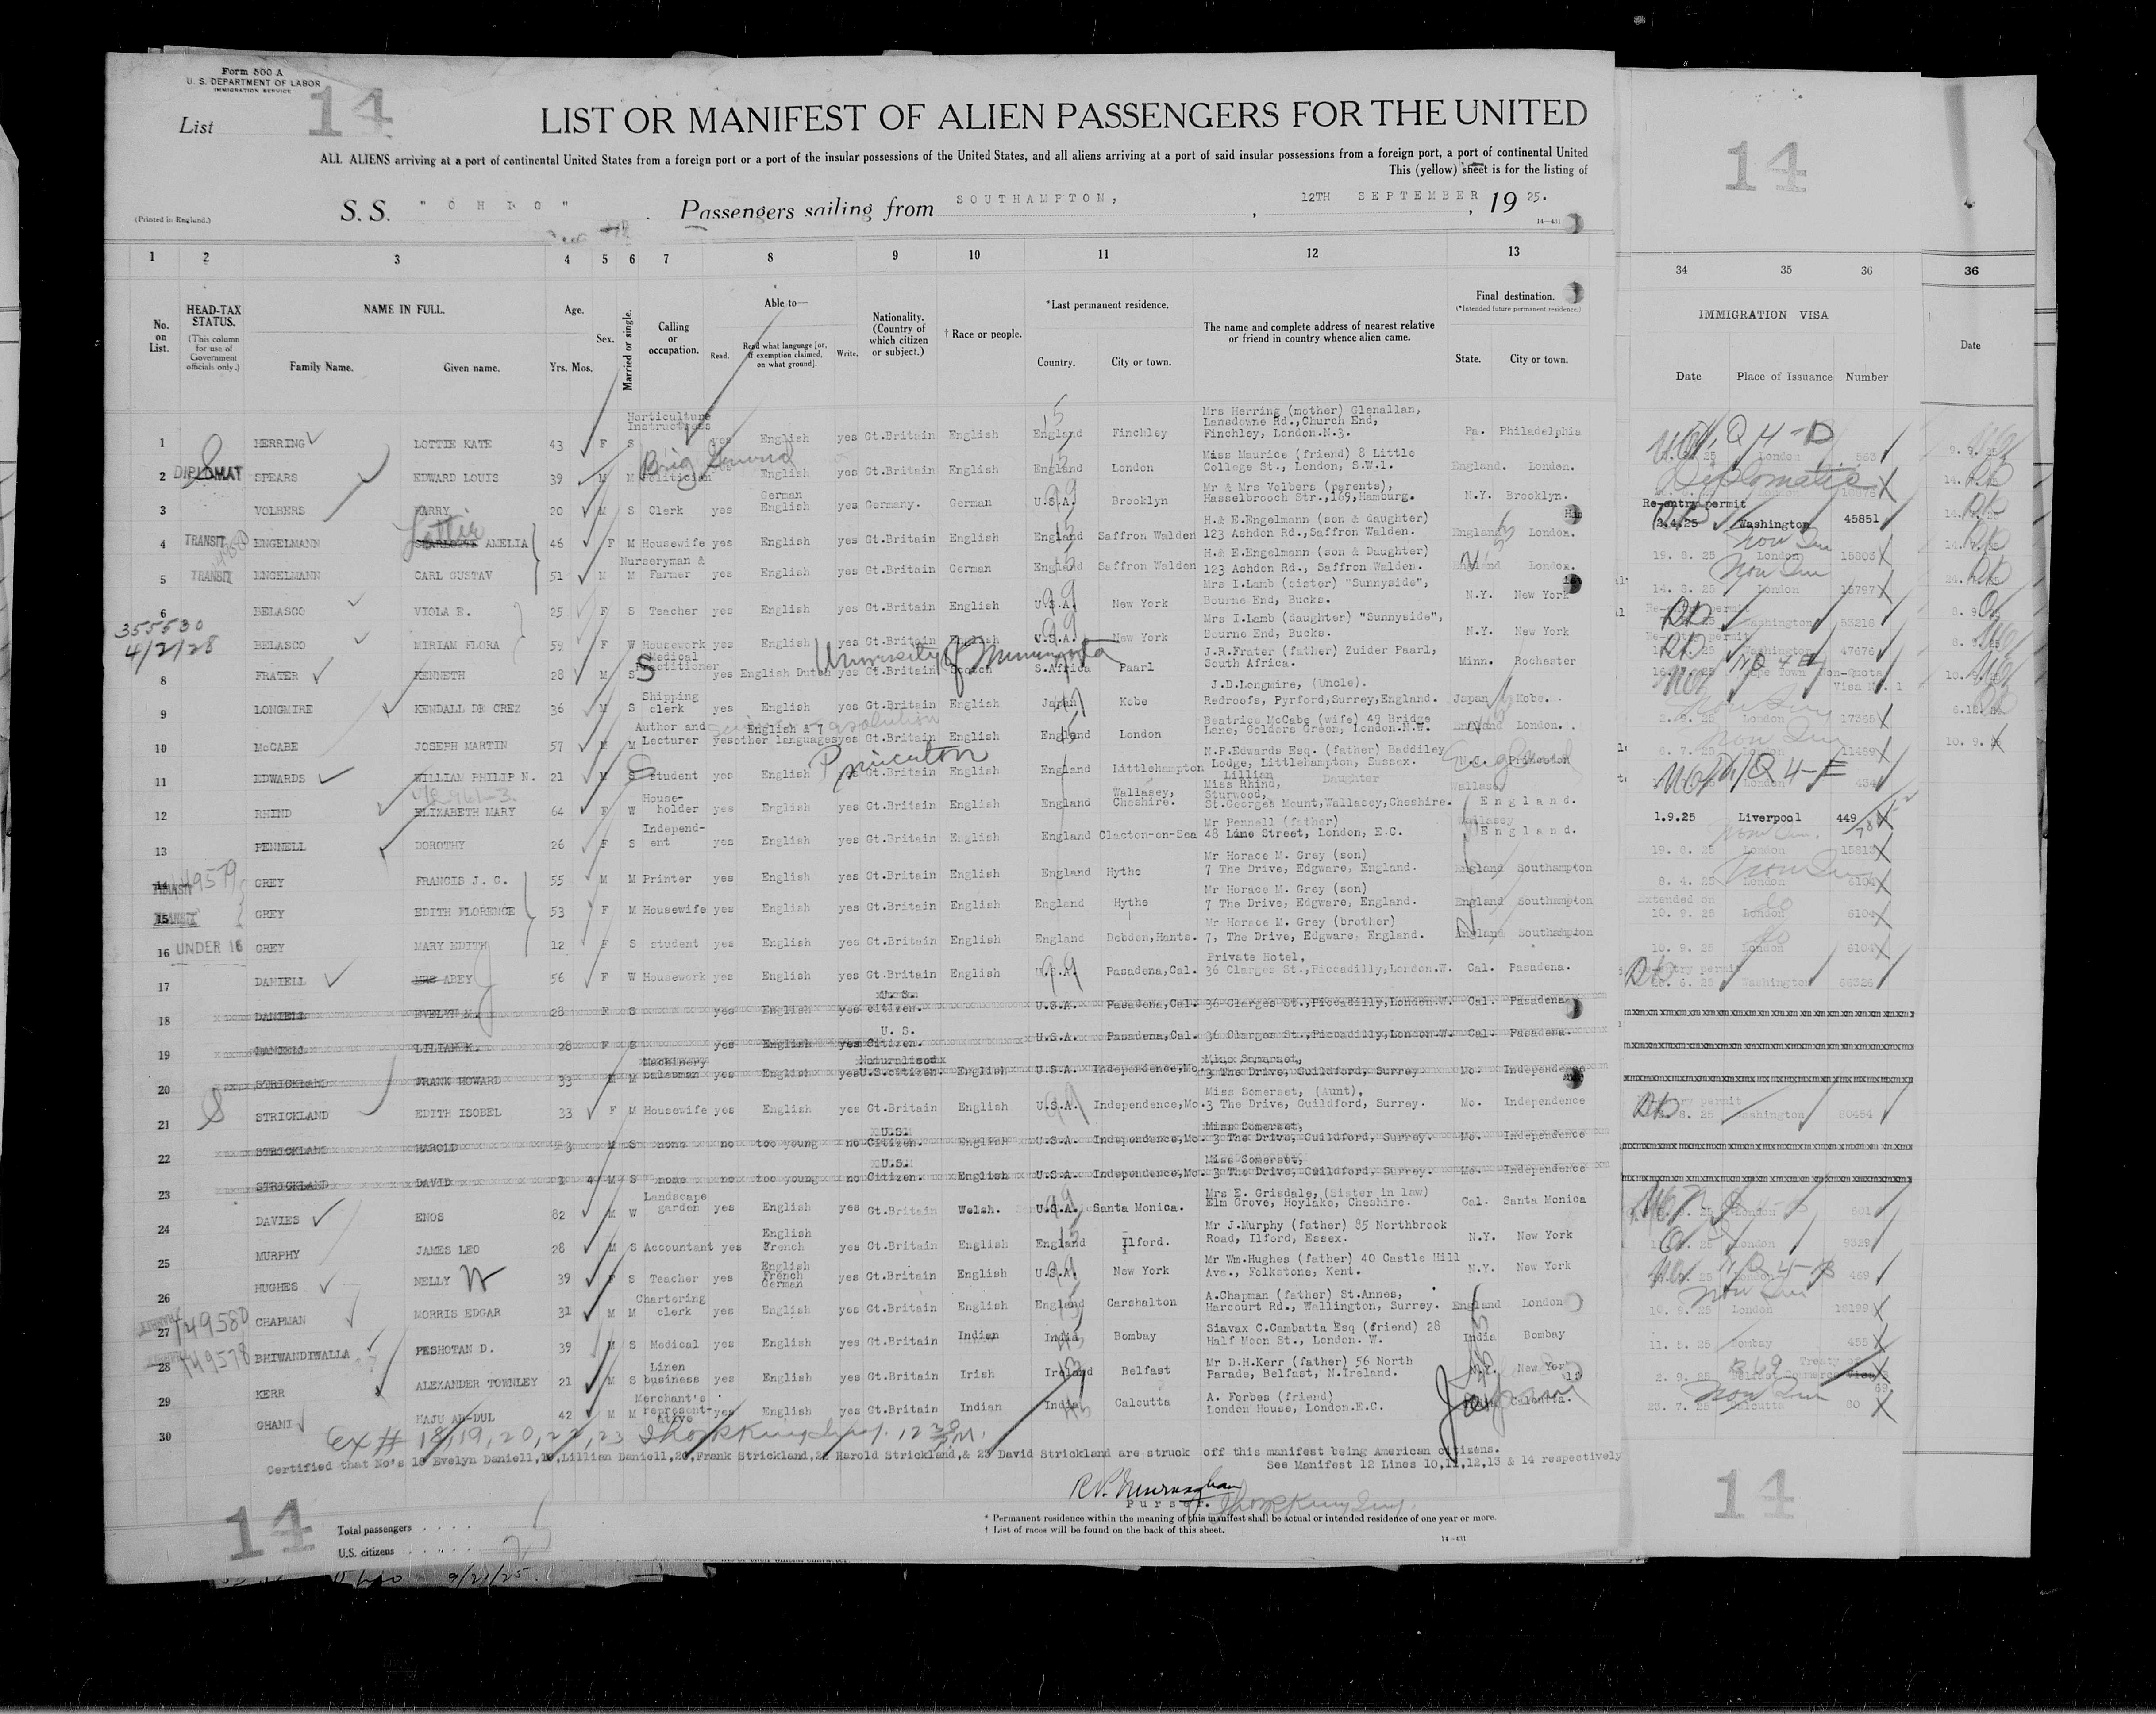 Form 500 A
U. S. DEPARTMENT OF LABOR
IMMIGRATION SERVICE
List 14
LIST OR MANIFEST OF ALIEN PASSENGERS FOR THE UNITED
ALL ALIENS arriving at a port of continental United States from a foreign port or a port of the insular possessions of the United States, and all aliens arriving at a port of said insular possessions from a foreign port, a port of continental United
This (yellow) sheet is for the listing of
(Printed in England.)
S.S. "OHIO" Passengers sailing from SOUTHAMPTON, 12TH SEPTEMBER, 19 25.
14
1 2 3 4 5 6 7 8 9 10 11 12 13 34 35 36 36
No. on List.
HEAD-TAX STATUS. (This column for use of Government officials only.)
NAME IN FULL. Family Name. Given name.
Age. Yrs. Mos.
Sex.
Married or single.
Calling or occupation.
Able to— Read. Read what language [or, if exemption claimed, on what ground]. Write.
Nationality. (Country of which citizen or subject.)
† Race or people.
*Last permanent residence. Country. City or town.
The name and complete address of nearest relative or friend in country whence alien came.
Final destination. (*Intended future permanent residence.) State. City or town.
IMMIGRATION VISA Date Place of Issuance Number
Date
1 HERRING LOTTIE KATE 43 F S Horticulture Instructress yes English yes Gt.Britain English England Finchley Mrs Herring (mother) Glenallan, Lansdowne Rd.,Church End, Finchley, London.N.3. Pa. Philadelphia London 563
2 DIPLOMAT SPEARS EDWARD LOUIS 39 M M Politician Brig General English yes Gt.Britain English England London Miss Maurice (friend) 8 Little College St., London, S.W.1. England. London. Diplomatic
3 VOLBERS HARRY 20 M S Clerk yes German English yes Germany. German U.S.A. Brooklyn Mr & Mrs Volbers (parents), Hasselbrooch Str.,169,Hamburg. N.Y. Brooklyn. Re-entry permit 2.4.25 Washington 45851
4 TRANSIT ENGELMANN Lottie AMELIA 46 F M Housewife yes English yes Gt.Britain English England Saffron Walden H.& E.Engelmann (son & daughter) 123 Ashdon Rd.,Saffron Walden. England London. 19. 8. 25 London 15803
5 TRANSIT ENGELMANN CARL GUSTAV 51 M M Nurseryman & Farmer yes English yes Gt.Britain German England Saffron Walden H.& E.Engelmann (son & Daughter) 123 Ashdon Rd., Saffron Walden. England London. 14. 8. 25 London 15797
6 BELASCO VIOLA E. 25 F S Teacher yes English yes Gt.Britain English U.S.A. New York Mrs I.Lamb (sister) "Sunnyside", Bourne End, Bucks. N.Y. New York Re-entry permit Washington 53218
355530
4/2/28 BELASCO MIRIAM FLORA 59 F W Housework yes English yes Gt.Britain English U.S.A. New York Mrs I.Lamb (daughter) "Sunnyside", Bourne End, Bucks. N.Y. New York Washington 47676
8 FRATER KENNETH 28 M S Medical Practitioner yes English Dutch yes Gt.Britain Scotch S.Africa Paarl J.R.Frater (father) Zuider Paarl, South Africa. Minn. Rochester Cape Town Non-Quota Visa No. 1
University of Minnesota
9 LONGMIRE KENDALL DE CREZ 36 M S Shipping clerk yes English yes Gt.Britain English Japan Kobe J.D.Longmire, (Uncle). Redroofs, Pyrford,Surrey,England. Japan Kobe. London 17365
10 McCABE JOSEPH MARTIN 57 M M Author and Lecturer yes English & 7 other languages yes Gt.Britain English England London Beatrice McCabe (wife) 49 Bridge Lane, Golders Green, London.N.W. England London. London 11489
11 EDWARDS WILLIAM PHILIP N. 21 M S Student yes English yes Gt.Britain English England Littlehampton N.P.Edwards Esq. (father) Baddiley Lodge, Littlehampton, Sussex. Princeton London 434
Princeton England
12 RHIND ELIZABETH MARY 64 F W House-holder yes English yes Gt.Britain English England Wallasey, Cheshire. Lillian Daughter Miss Rhind, Sturwood, St.Georges Mount,Wallasey,Cheshire. Wallasey England. 1.9.25 Liverpool 449
13 PENNELL DOROTHY 26 F S Independ-ent yes English yes Gt.Britain English England Clacton-on-Sea Mr Pennell (father) 48 Lime Street, London, E.C. England. 19. 8. 25 London 15813
14 TRANSIT 149579 GREY FRANCIS J. C. 55 M M Printer yes English yes Gt.Britain English England Hythe Mr Horace M. Grey (son) 7 The Drive, Edgware, England. England Southampton 8. 4. 25 London 6104
15 TRANSIT GREY EDITH FLORENCE 53 F M Housewife yes English yes Gt.Britain English England Hythe Mr Horace M. Grey (son) 7 The Drive, Edgware, England. England Southampton Extended on 10. 9. 25 London 6104
16 UNDER 16 GREY MARY EDITH 12 F S student yes English yes Gt.Britain English England Debden,Hants. Mr Horace M. Grey (brother) 7, The Drive, Edgware, England. England Southampton 10. 9. 25 London 6104
17 DANIELL MRS ABEY 56 F W Housework yes English yes Gt.Britain English U.S.A. Pasadena,Cal. Private Hotel, 36 Clarges St.,Piccadilly,London.W. Cal. Pasadena. Re-entry permit Washington
18 DANIELL EVELYN M. 28 F S yes English yes U.S. citizen. U.S.A. Pasadena,Cal. 36 Clarges St.,Piccadilly,London.W. Cal. Pasadena
19 DANIELL LILIAN K. 28 F S yes English yes U. S. Citizen. U.S.A. Pasadena,Cal. 36 Clarges St.,Piccadilly,London.W. Cal. Pasadena.
20 STRICKLAND FRANK HOWARD 33 M M Machinery Salesman yes English yes Naturalised U.S.citizen. English U.S.A. Independence,Mo. Miss Somerset, 3 The Drive, Guildford, Surrey. Mo. Independence
21 STRICKLAND EDITH ISOBEL 33 F M Housewife yes English yes Gt.Britain English U.S.A. Independence,Mo. Miss Somerset, (Aunt), 3 The Drive, Guildford, Surrey. Mo. Independence permit Washington 60484
22 STRICKLAND HAROLD 3 M S none no too young no U.S. Citizen. English U.S.A. Independence,Mo. Miss Somerset, 3 The Drive, Guildford, Surrey. Mo. Independence
23 STRICKLAND DAVID 1 4 M S none no too young no U.S. Citizen. English U.S.A. Independence,Mo. Miss Somerset, 3 The Drive, Guildford, Surrey. Mo. Independence
24 DAVIES ENOS 82 M W Landscape garden yes English yes Gt.Britain Welsh. U.S.A. Santa Monica. Mrs E. Grisdale, (Sister in law) Elm Grove, Hoylake, Cheshire. Cal. Santa Monica London 601
25 MURPHY JAMES LEO 28 M S Accountant yes English French yes Gt.Britain English England Ilford. Mr J.Murphy (father) 85 Northbrook Road, Ilford, Essex. N.Y. New York London 9329
26 HUGHES NELLY W 39 F S Teacher yes English French German yes Gt.Britain English U.S.A. New York Mr Wm.Hughes (father) 40 Castle Hill Ave., Folkstone, Kent. N.Y. New York London 469
27 TRANSIT 149580 CHAPMAN MORRIS EDGAR 31 M M Chartering clerk yes English yes Gt.Britain English England Carshalton A.Chapman (father) St.Annes, Harcourt Rd., Wallington, Surrey. England London 10. 9. 25 London 18199
28 149578 BHIWANDIWALLA PESHOTAN D. 39 M S Medical yes English yes Gt.Britain Indian India Bombay Siavax C.Cambatta Esq (friend) 28 Half Moon St., London. W. India Bombay 11. 5. 25 Bombay 455
29 KERR ALEXANDER TOWNLEY 21 M S Linen business yes English yes Gt.Britain Irish Ireland Belfast Mr D.H.Kerr (father) 56 North Parade, Belfast, N.Ireland. N.Y. New York 2. 9. 25 Belfast
30 GHANI HAJU AB-DUL 42 M M Merchant's represent-ative yes English yes Gt.Britain Indian India Calcutta A. Forbes (friend) London House, London.E.C. Calcutta. 23. 7. 25 Calcutta 80
Japan
Ex # 18, 19, 20, 22, 23
Certified that No's 18 Evelyn Daniell,19,Lillian Daniell,20,Frank Strickland,22 Harold Strickland,& 23 David Strickland are struck off this manifest being American citizens.
See Manifest 12 Lines 10,11,12,13 & 14 respectively
Purser.
* Permanent residence within the meaning of this manifest shall be actual or intended residence of one year or more.
† List of races will be found on the back of this sheet.
14—431
14
Total passengers
U.S. citizens
14
9/21/25.